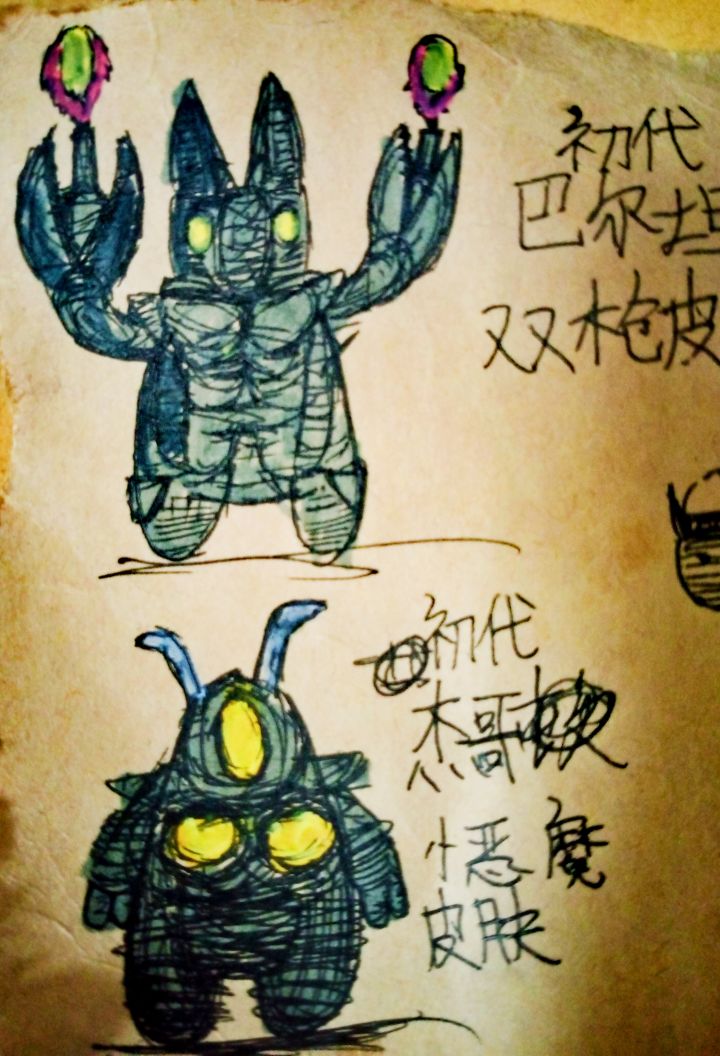 初代
巴尔坦
双枪皮
初代
杰哥
小恶魔
皮肤